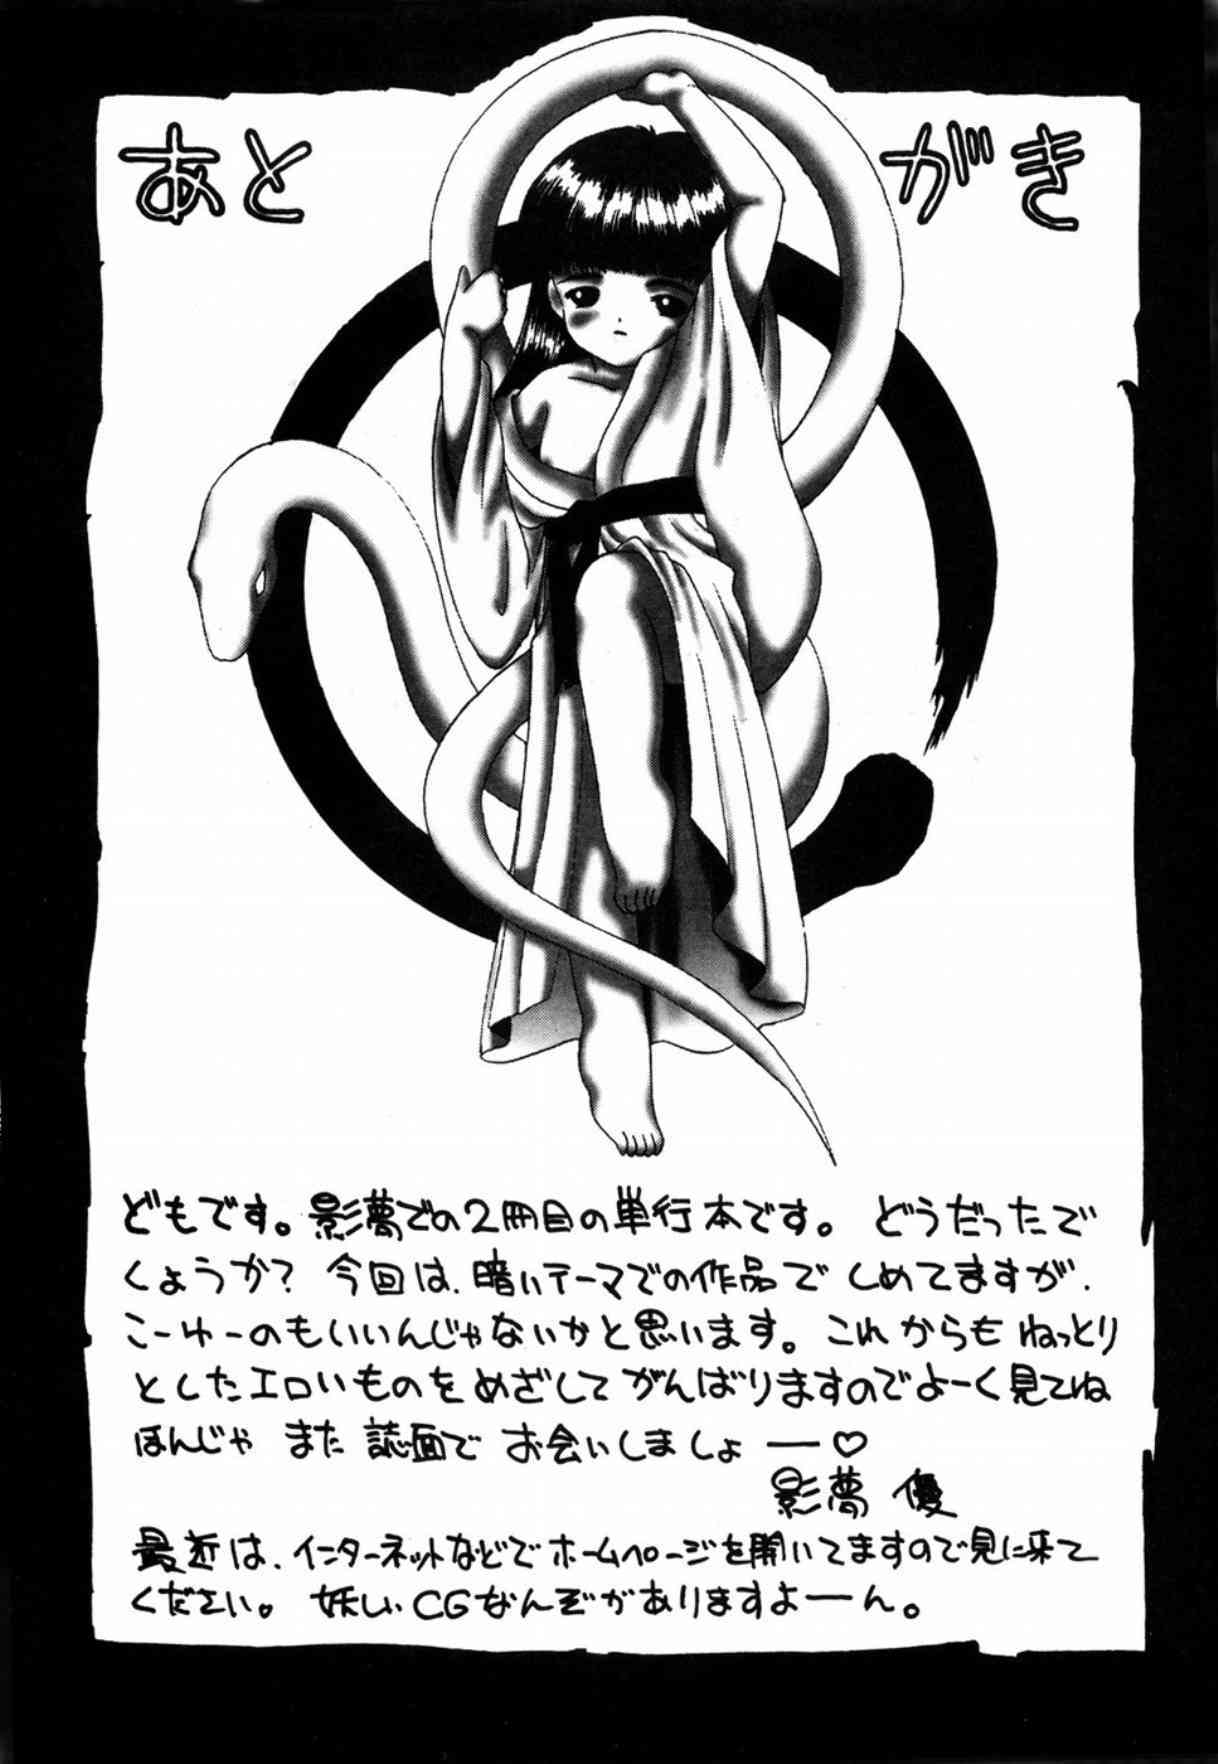 あとがき
どもです。影夢での2冊目の単行本です。どうだったで
くょうか？今回は、暗いテーマでの作品でしめてますが、
こーゆーのもいいんじゃないかと思います。これからもねっとり
としたエロいものをめざしてがんばりますのでよーく見てね
ほんじゃまた誌面でお会いしましょ——♡
影夢 優
最近は、インターネットなどでホームページを開いてますので見に来て
ください。妖しいCGなんぞがありますよーん。